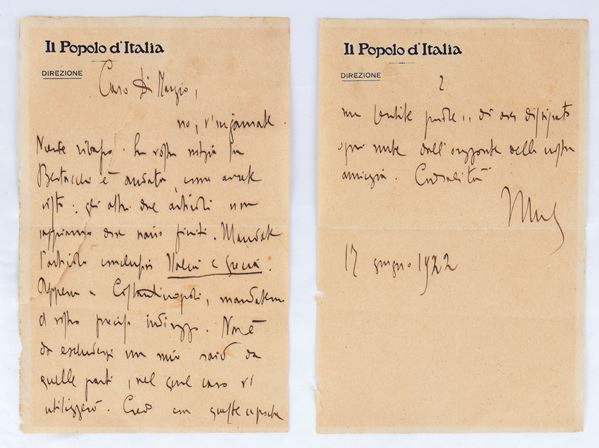 Il Popolo d'Italia
DIREZIONE
Caro Di Marzio,
no, v'ingannate.
Niente silenzio. La vostra notizia su
è andata, come avrete
visto: gli altri due articoli non
sappiamo dove siano finiti. Mandate
l'articolo conclusivo Italia e Grecia.
Appena a Costantinopoli, mandatemi
il vostro preciso indirizzo. Non è
da escludersi un mio raid da
quelle parti, nel qual caso vi
utilizzerò. Credo con queste
Il Popolo d'Italia
DIREZIONE
2
di aver dissipato
ogni nube dall'orizzonte della nostra
amicizia. Cordialità
17 giugno 1922